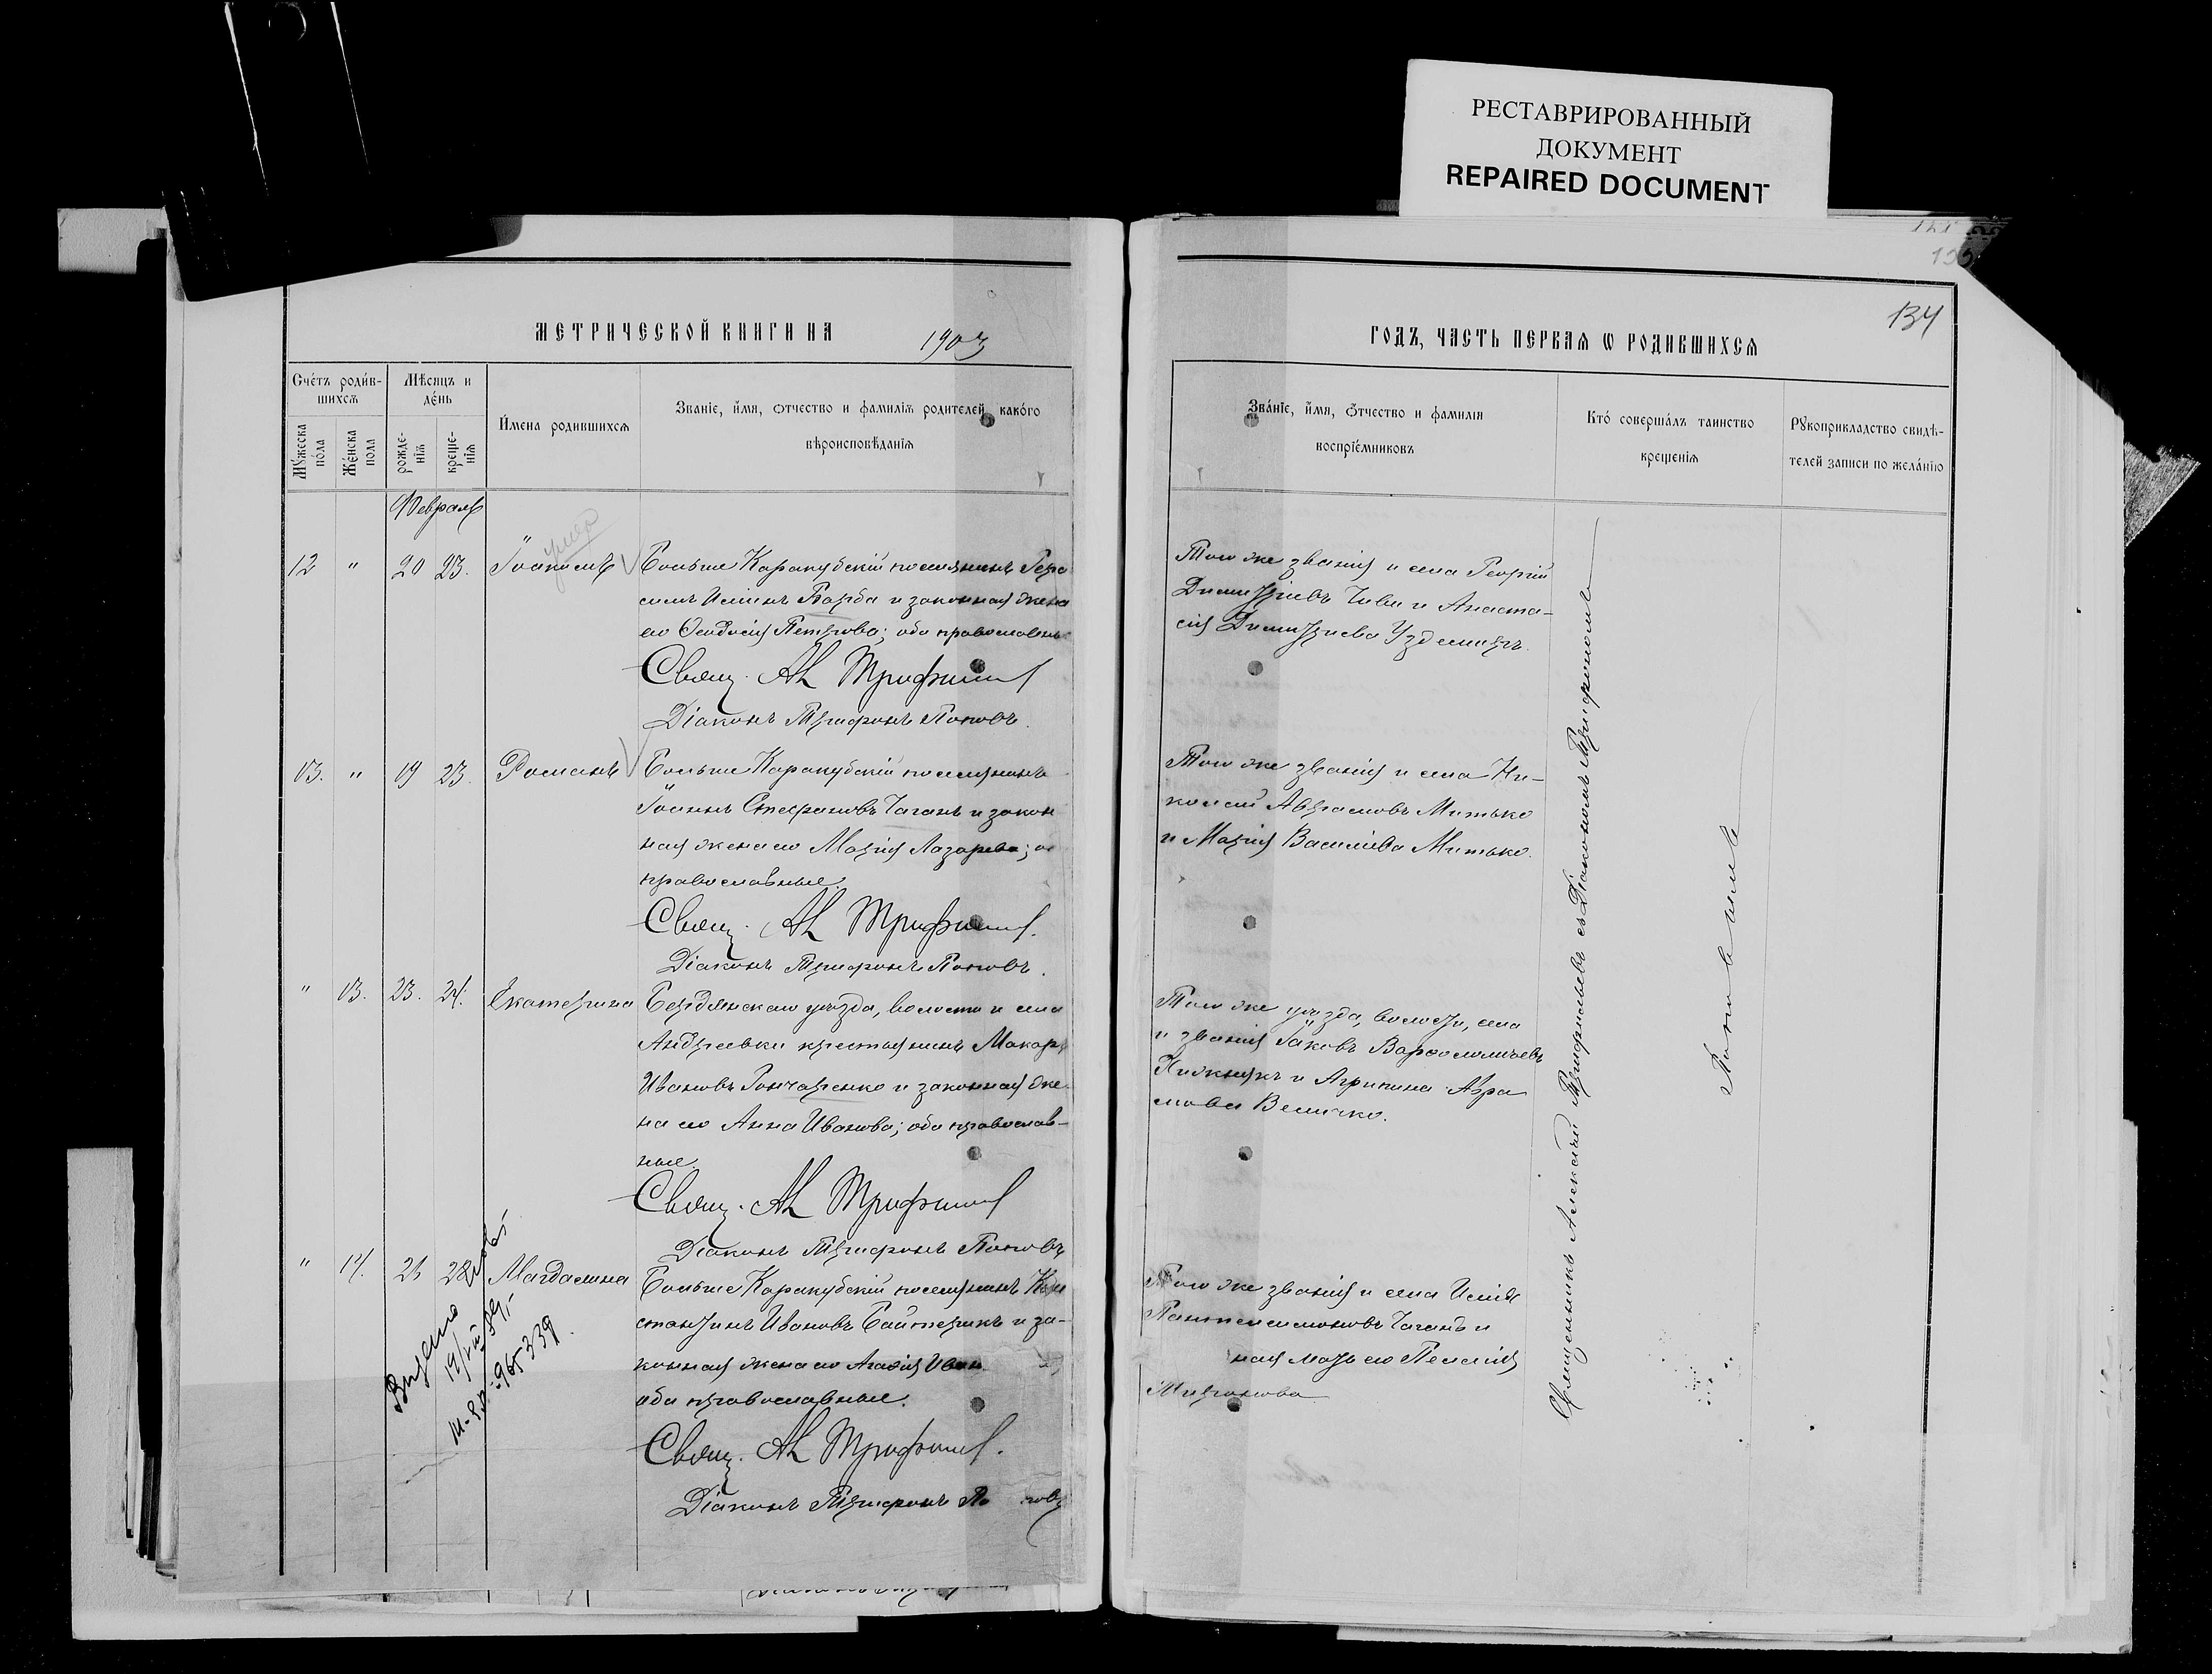 РЕСТАВРИРОВАННЫЙ
ДОКУМЕНТ
REPAIRED DOCUMENT
134
МЕТРИЧЕСКОЙ КНИГИ НА 1903
ГОДЪ, ЧАСТЬ ПЕРВАЯ Ѡ РОДИВШИХСЯ
Сче́тъ роди́в-
шихсѧ
Мѣсяцъ и
де́нь
Мꙋ́жеска
по́ла
Же́нска
пола
рожде-
нїѧ
креще-
нїѧ
И́мена родившихсѧ
Званїе, и́мя, ѻтчество и фамилїѧ родителей, како́го
вѣроисповѣданїѧ
Зва́нїе, и́мя, ѻ́тчество и фамилїя
воспрїе́мниковъ
Кто́ соверша́лъ таинство
крещенїѧ
Рꙋкоприкладство свидѣ-
телей записи по жела́нїю
Февраль
12 " 20 23. Іоакимъ
умер
Больше Каракубскій поселянинъ Гера
симъ Ильинъ Барба и законная жена
его Ѳеодосія Петрова; оба православны
Свящ. Ал Трифильев
Діаконъ Трифонъ Поповъ.
Того же званія и села Георгій
Димитріевъ Чиви и Анаста-
сія Димитріева Узденизъ.
13. " 19 23. Романъ
Больше Каракубскій поселянинъ
Іоаннъ Стефановъ Чаганъ и закон
ная жена его Марія Лазарева; о
православные.
Свящ. Ал Трифильев.
Діаконъ Трифонъ Поповъ.
Того же званія и села Ни-
колай Авраамовъ Митько
и Марія Василіева Митько.
" 13. 23. 24. Екатерина
Бердянскаго уѣзда, волости и села
Андреевки крестьянинъ Макарі
Ивановъ Гончаренко и законная же-
на его Анна Иванова; оба православ-
ные.
Свящ. Ал Трифильев
Діаконъ Трифонъ Поповъ
Того же уѣзда, волости, села
и званія Іаковъ Варѳоломѣевъ
Кижнякъ и Агрипина Авра
мова Величко.
" 14. 21 28 Магдалина
Больше Каракубскій поселянинъ Кон
стантинъ Ивановъ Байтерякъ и за-
конная жена его Агаѳія Иван
оба православные.
Свящ. Ал Трифильев.
Діаконъ Трифонъ По повъ
Того же званія и села Илія
Пантелеимоновъ Чаганъ и
ная мать его Пелагія
Миронова
965339
Священникъ Алексѣй Трифильевъ съ Діакономъ Трифономъ
Поповымъ